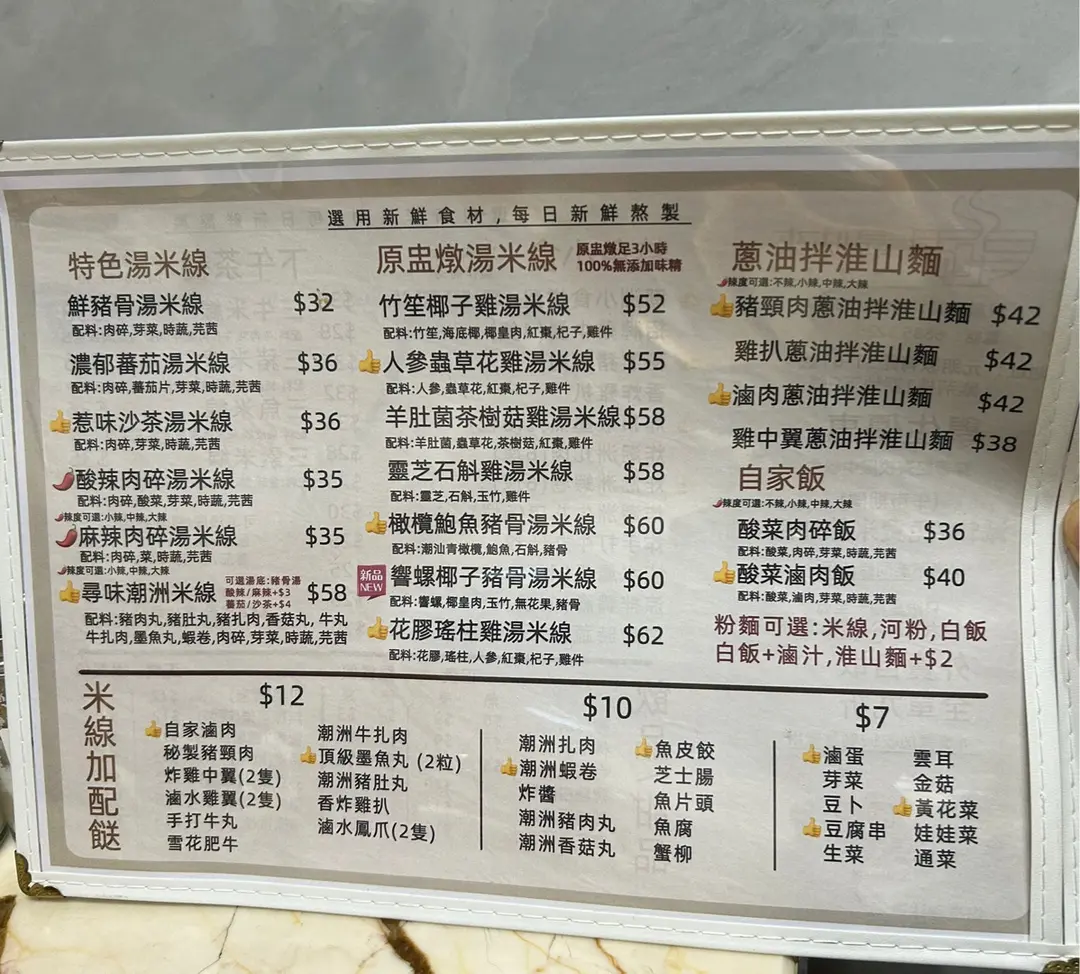 選用新鮮食材,每日新鮮熬製
特色湯米線
鮮豬骨湯米線 $32
配料:肉碎,芽菜,時蔬,芫茜
濃郁蕃茄湯米線 $36
配料:肉碎,蕃茄片,芽菜,時蔬,芫茜
惹味沙茶湯米線 $36
配料:肉碎,芽菜,時蔬,芫茜
酸辣肉碎湯米線 $35
配料:肉碎,酸菜,芽菜,時蔬,芫茜
辣度可選:小辣,中辣,大辣
麻辣肉碎湯米線 $35
配料:肉碎,菜,時蔬,芫茜
辣度可選:小辣,中辣,大辣
尋味潮洲米線 $58
可選湯底:豬骨湯
酸辣/麻辣+$3
蕃茄/沙茶+$4
配料:豬肉丸,豬肚丸,豬扎肉,香菇丸,牛丸
牛扎肉,墨魚丸,蝦卷,肉碎,芽菜,時蔬,芫茜
原盅燉湯米線
原盅燉足3小時
100%無添加味精
竹笙椰子雞湯米線 $52
配料:竹笙,海底椰,椰皇肉,紅棗,杞子,雞件
人參蟲草花雞湯米線 $55
配料:人參,蟲草花,紅棗,杞子,雞件
羊肚菌茶樹菇雞湯米線 $58
配料:羊肚菌,蟲草花,茶樹菇,紅棗,雞件
靈芝石斛雞湯米線 $58
配料:靈芝,石斛,玉竹,雞件
橄欖鮑魚豬骨湯米線 $60
配料:潮汕青橄欖,鮑魚,石斛,豬骨
新品
NEW
響螺椰子豬骨湯米線 $60
配料:響螺,椰皇肉,玉竹,無花果,豬骨
花膠瑤柱雞湯米線 $62
配料:花膠,瑤柱,人參,紅棗,杞子,雞件
蔥油拌淮山麵
辣度可選:不辣,小辣,中辣,大辣
豬頸肉蔥油拌淮山麵 $42
雞扒蔥油拌淮山麵 $42
滷肉蔥油拌淮山麵 $42
雞中翼蔥油拌淮山麵 $38
自家飯
辣度可選:不辣,小辣,中辣,大辣
酸菜肉碎飯 $36
配料:酸菜,肉碎,芽菜,時蔬,芫茜
酸菜滷肉飯 $40
配料:酸菜,滷肉,芽菜,時蔬,芫茜
粉麵可選:米線,河粉,白飯
白飯+滷汁,淮山麵+$2
米線加配餸
$12
自家滷肉
秘製豬頸肉
炸雞中翼(2隻)
滷水雞翼(2隻)
手打牛丸
雪花肥牛
潮洲牛扎肉
頂級墨魚丸 (2粒)
潮洲豬肚丸
香炸雞扒
滷水鳳爪(2隻)
$10
潮洲扎肉
潮洲蝦卷
炸醬
潮洲豬肉丸
潮洲香菇丸
魚皮餃
芝士腸
魚片頭
魚腐
蟹柳
$7
滷蛋
芽菜
豆卜
豆腐串
生菜
雲耳
金菇
黃花菜
娃娃菜
通菜